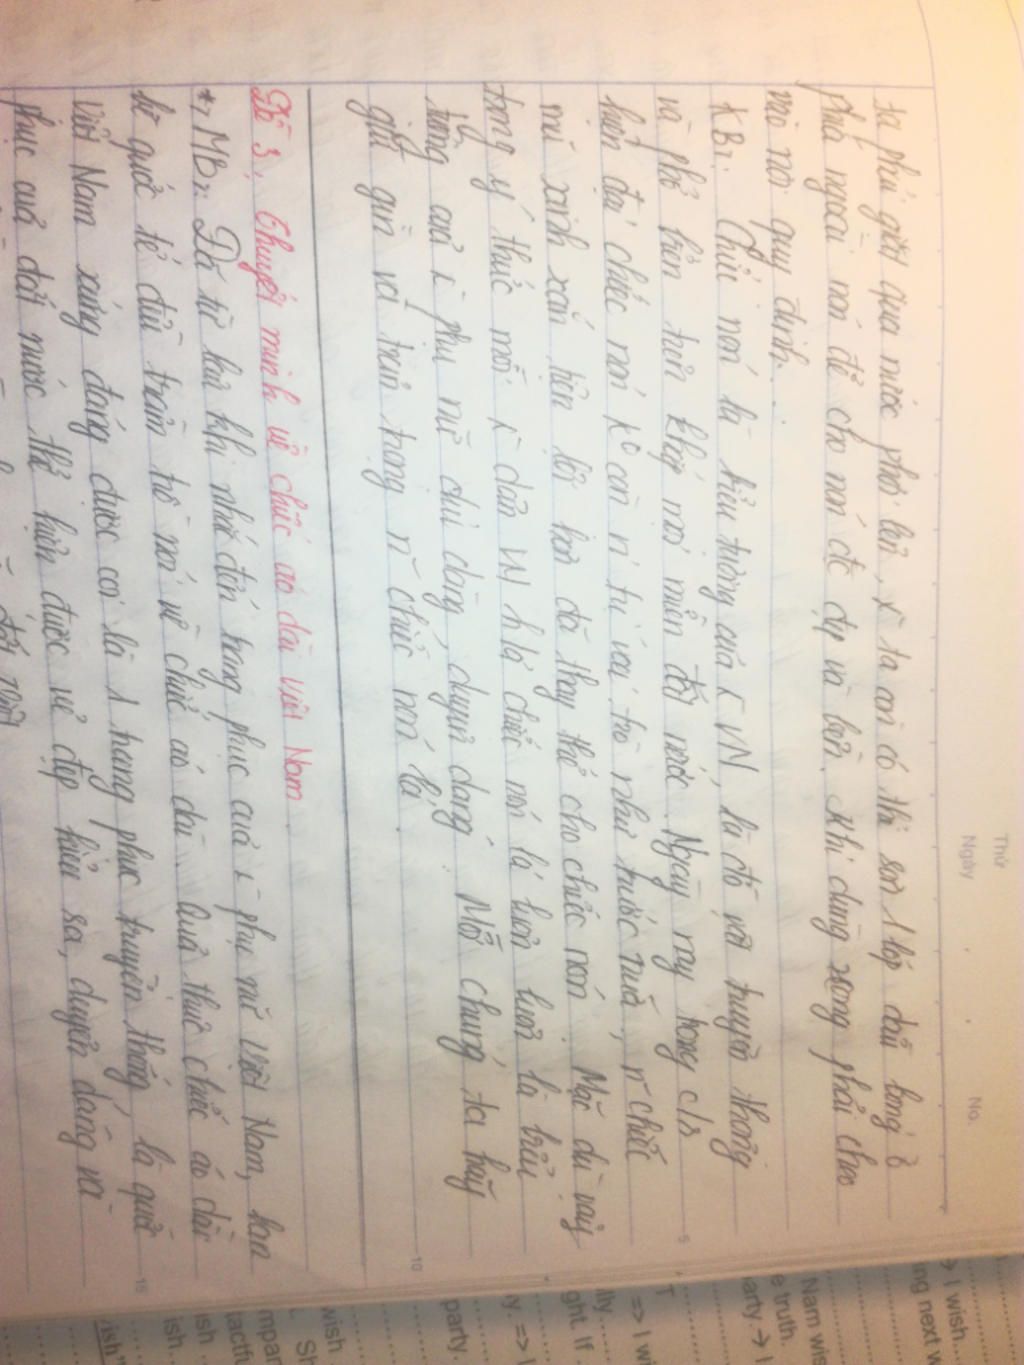 Thứ
Ngày
No.
ta phủ giữ qua nước phơi lên, x ta còn có thể sơn 1 lớp dầu bóng ở
phía ngoài nón để cho nón đc đẹp và bền. Khi dùng xong phải cho
vào nơi quy định.
KB2: Chiếc nón là biểu tượng của x VN, là đồ vật truyền thống
và phổ biến trên khắp mọi miền đất nước. Ngày nay trong c/s
hiện đại chiếc nón ko còn n tư vai trò như trước nữa, n~ chiếc
mũ xinh xắn tiện lợi hơn đã thay thế cho chiếc nón. Mặc dù vậy
trong ý thức mỗi x dân VN h/á chiếc nón lá luôn luôn là biểu
tượng của x phụ nữ dịu dàng, duyên dáng. Mỗi chúng ta hãy
giữ gìn và trân trọng n~ chiếc nón lá.
Đề 3, Thuyết minh về chiếc áo dài Việt Nam.
*, MB2: Đã từ lâu khi nhắc đến trang phục của x phụ nữ Việt Nam, bạn
bè quốc tế đều trầm trồ nói về chiếc áo dài. Quả thực chiếc áo dài
Việt Nam xứng đáng được coi là 1 trang phục truyền thống, là quốc
phục của đất nước thể hiện được vẻ đẹp kiêu sa, duyên dáng và
5
10
15
I wish
ing next
Nam wis
e truth.
arty → I
T
=> I wi
ally
ght. If
ay. => I
party.
wish
Sh
mpar
tactfu
ish
ish
wish"